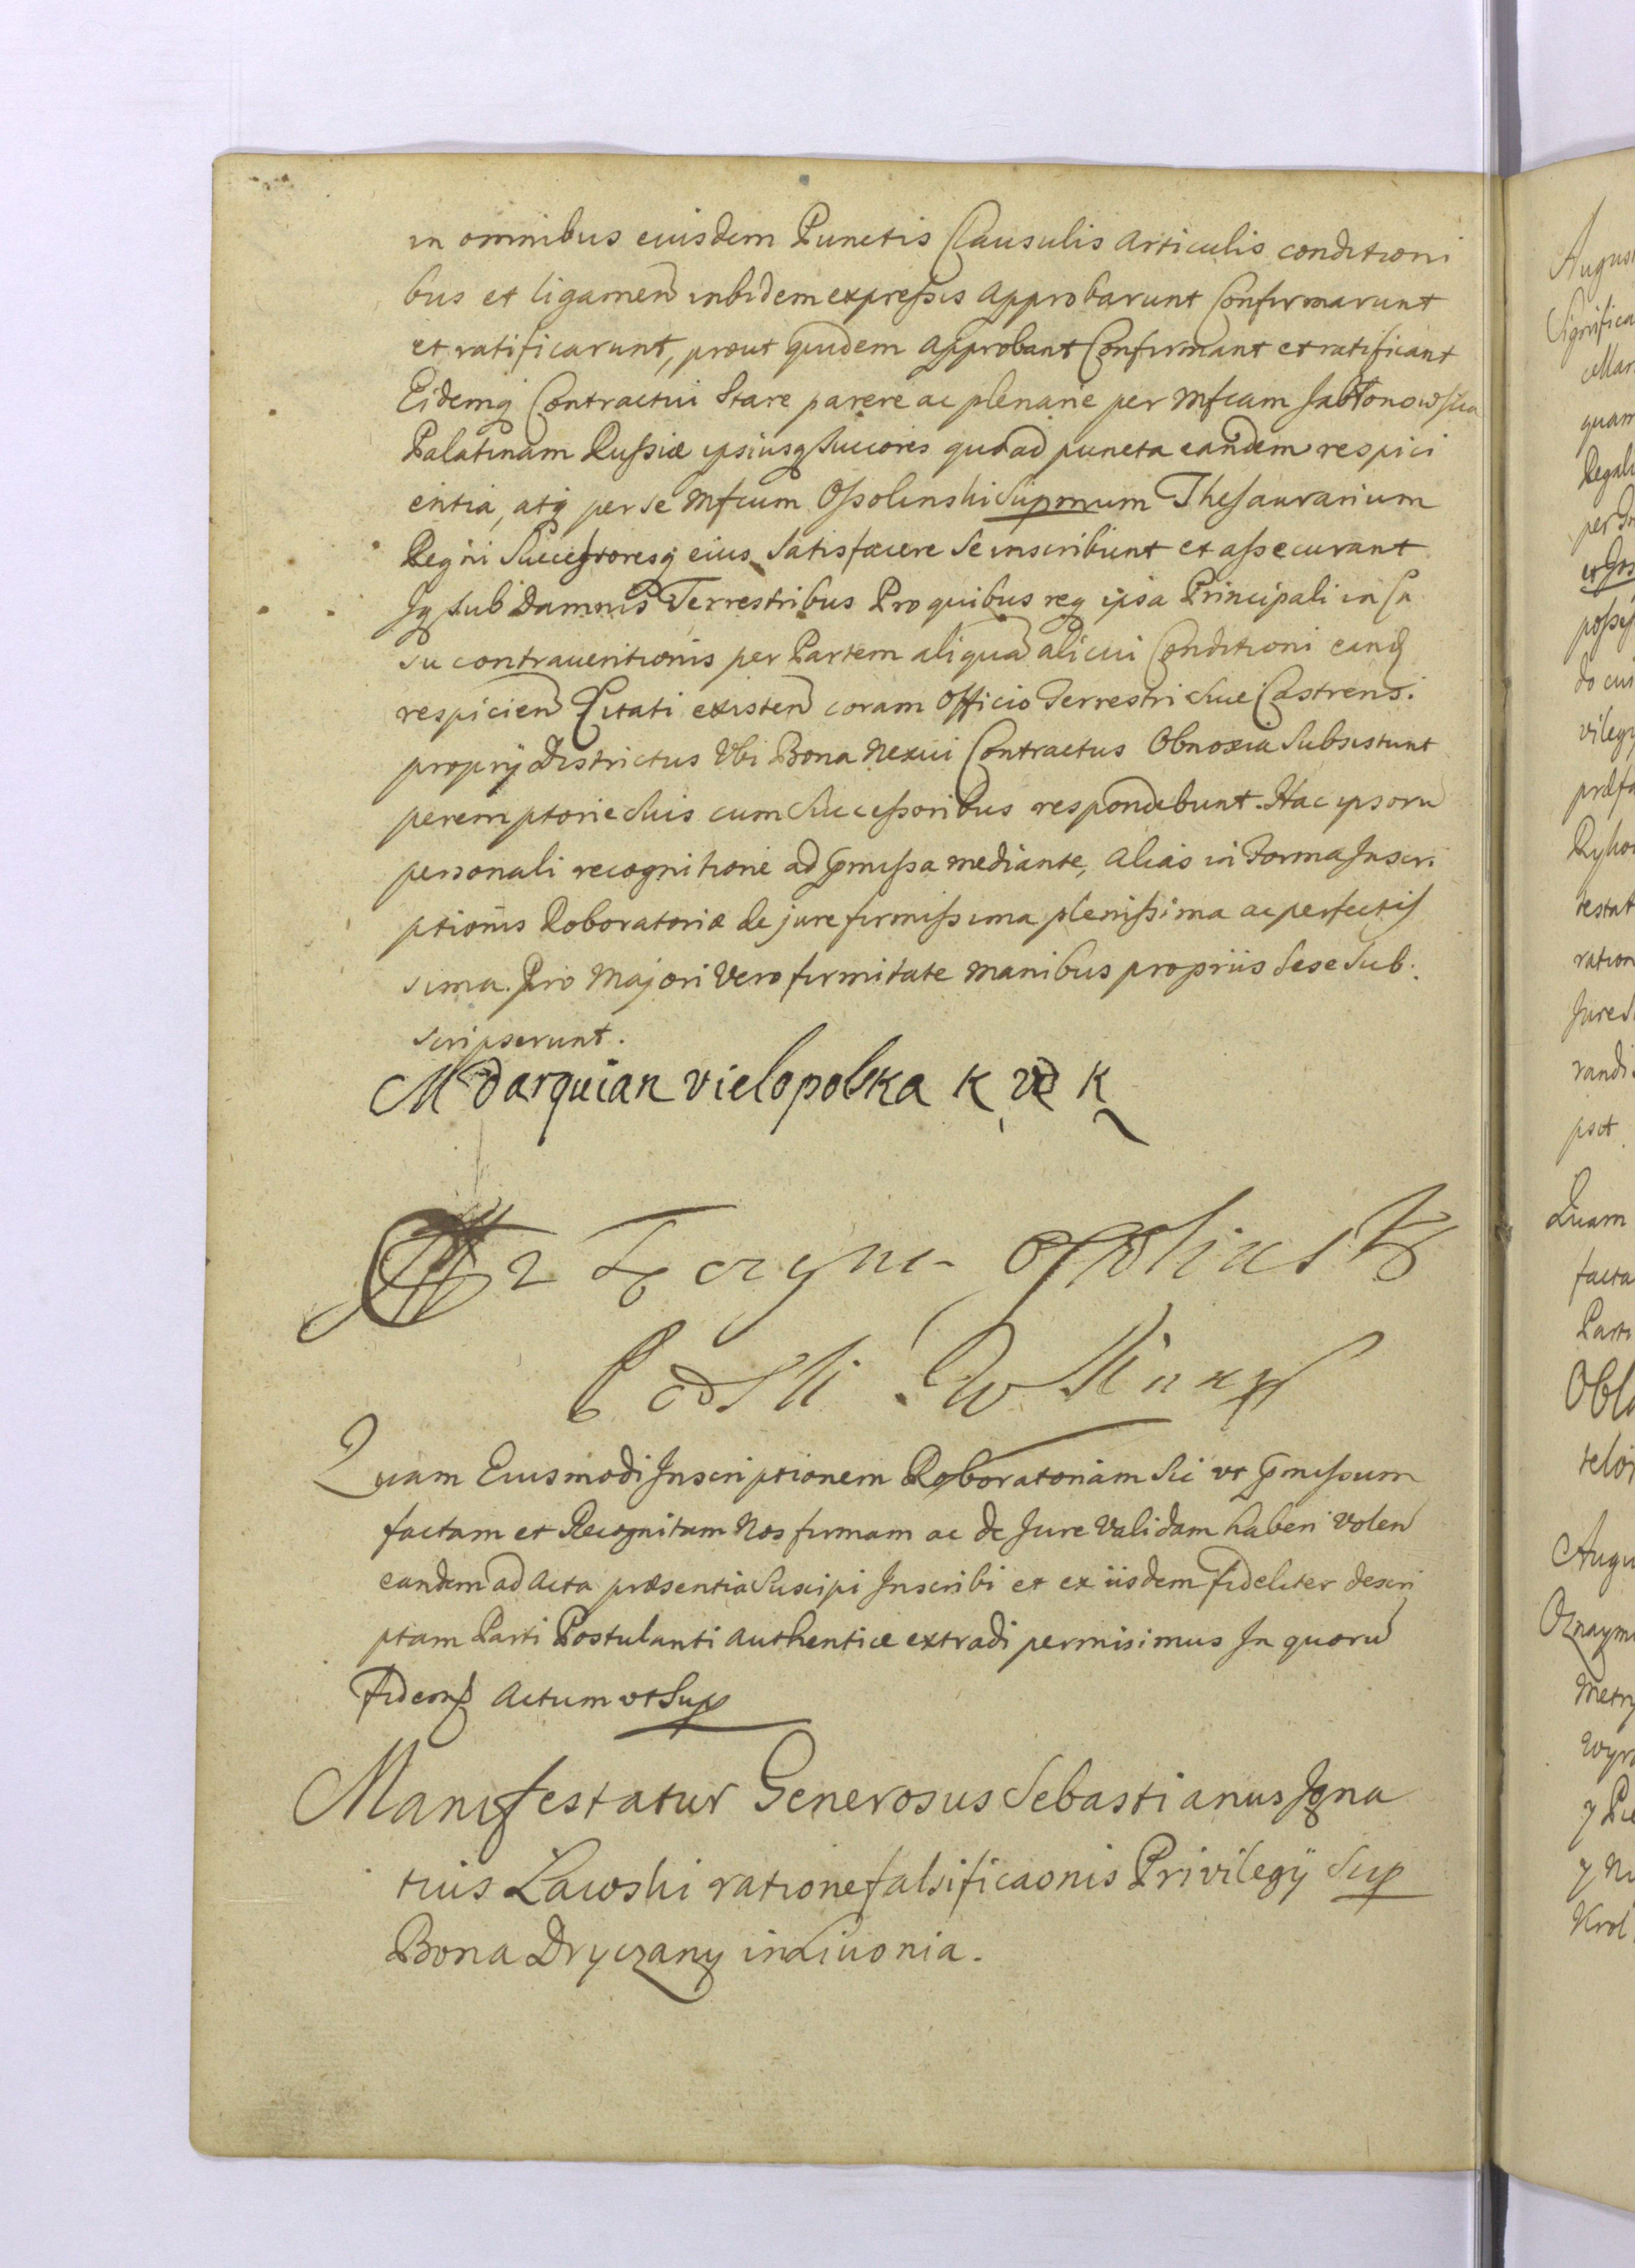 in omnibus eiusdem Punctis Clausulis Articulis conditioni
bus et ligamen inbidem expressis approbarunt Confirmarunt
et ratificarunt, prout quidem approbant Confirmant et ratificant
Eidemq Contractui Stare parere ac plenarie per Mfcam Jabłonowska
Palatinam Russiæ ipsiusq succores quoad puncta eandem respici
entia, atq per se Mfcum Ossolinski Supmum Thesaurarium
Regni Successoresq eius Satisfacere Se inscribunt et assecurant
Jq sub Damnis Terrestribus Pro quibus req ipsa Principali in Ca
su contrauentionis per Partem aliqua alicui Conditioni eand
respicien Citati existen coram Officio Terrestri Siue Castrensi
proprij districtus Vbi Bona Nexui Contractus Obnoxia Subsistunt
peremptorie Suis cum Successoribus respondebunt. Hac ipsoru
personali recognitione ad pmissa mediante, alias in Forma Inscri
ptionis Roboratoriæ de jure firmissima plenissima ac perfectis
sima. Pro Majori Vero firmitate manibus propriis Sese Sub:
scripserunt.
M darquian vielopolska K W K
Quam Eiusmodi Inscriptionem Roboratoriam Sic vt pmissum
factam et Recognitam Nos firmam ac de Jure Validam haberi Volen
eandem ad Acta præsentia Suscipi Inscribi et ex iisdem fideliter descri
ptam Parti Postulanti Authentice extradi permisimus In quoru
fidem Actum vt Sup
Manifestatur Generosus Sebastianus Igna
tius Ławski ratione falsificaonis Privilegij Sup
Bona Dryczany in Liuonia.